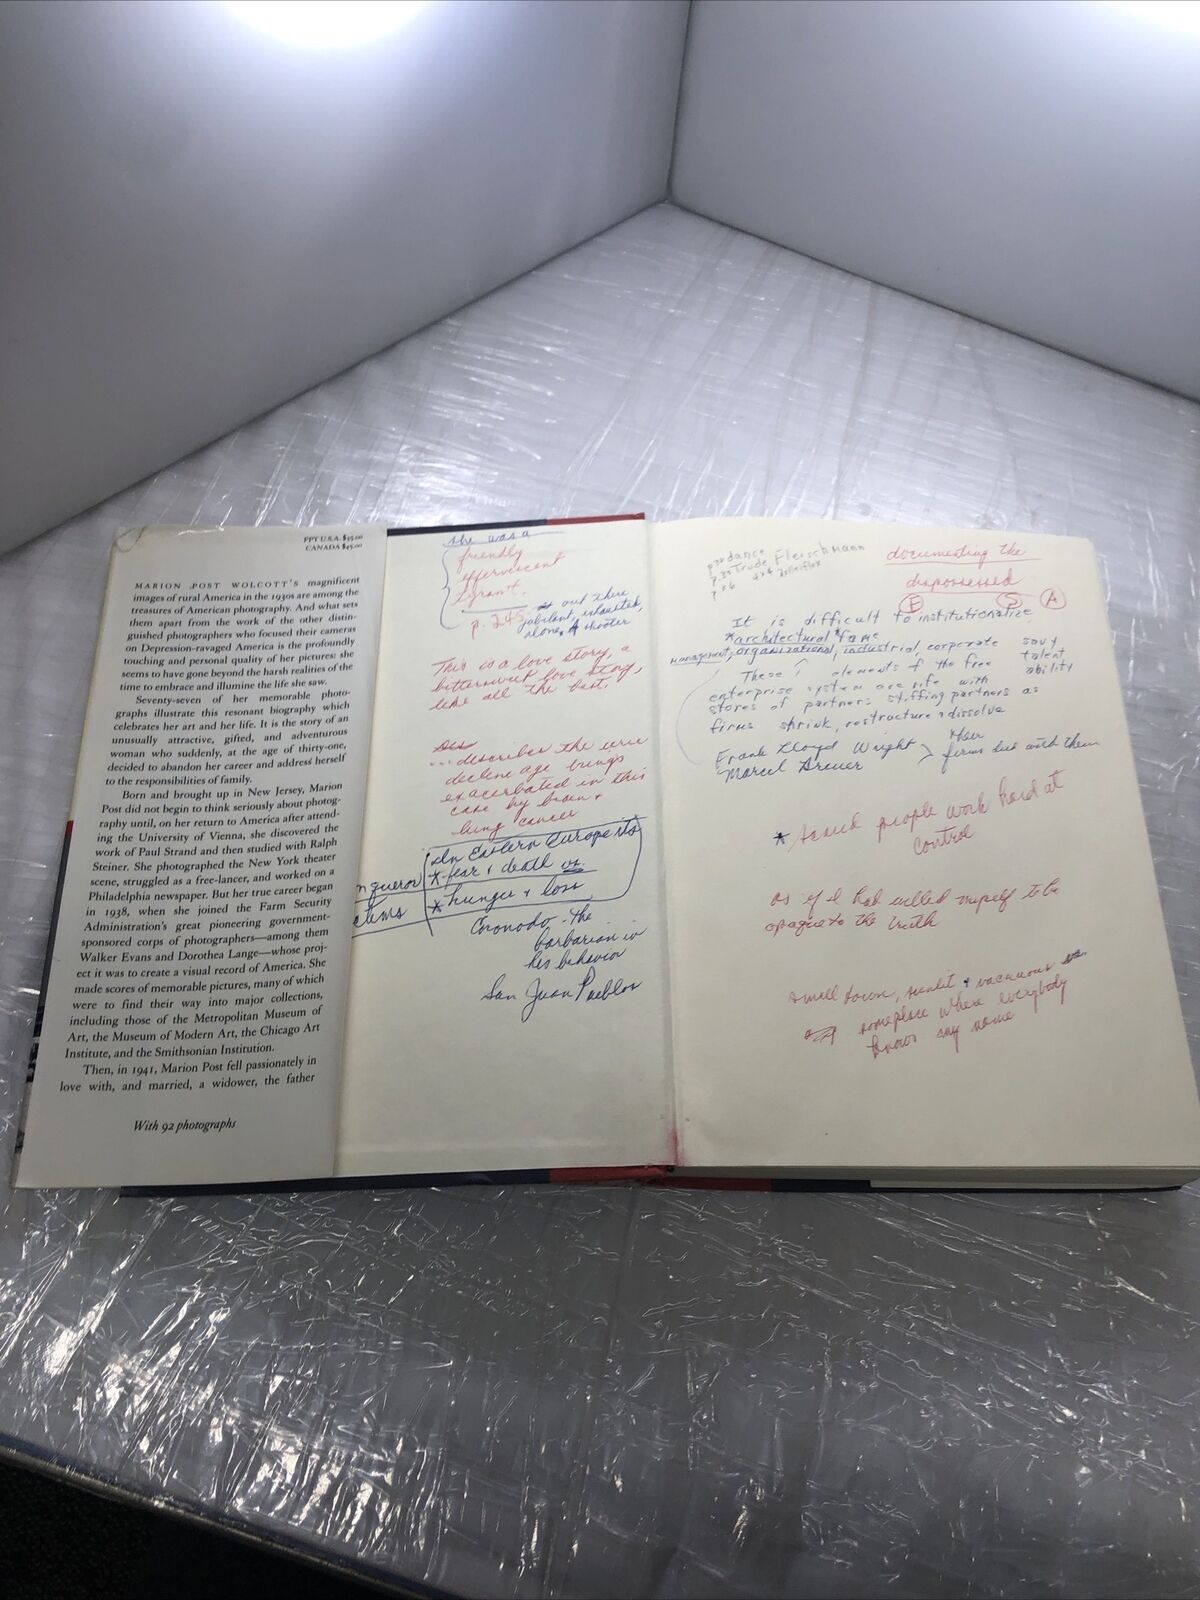 FPT U.S.A. $35.00
CANADA $45.00
MARION POST WOLCOTT'S magnificent
images of rural America in the 1930s are among the
treasures of American photography. And what sets
them apart from the work of the other distin-
guished photographers who focused their cameras
on Depression-ravaged America is the profoundly
touching and personal quality of her pictures: she
seems to have gone beyond the harsh realities of the
time to embrace and illumine the life she saw.
Seventy-seven of her memorable photo-
graphs illustrate this resonant biography which
celebrates her art and her life. It is the story of an
unusually attractive, gifted, and adventurous
woman who suddenly, at the age of thirty-one,
decided to abandon her career and address herself
to the responsibilities of family.
Born and brought up in New Jersey, Marion
Post did not begin to think seriously about photog-
raphy until, on her return to America after attend-
ing the University of Vienna, she discovered the
work of Paul Strand and then studied with Ralph
Steiner. She photographed the New York theater
scene, struggled as a free-lancer, and worked on a
Philadelphia newspaper. But her true career began
in 1938, when she joined the Farm Security
Administration's great pioneering government-
sponsored corps of photographers—among them
Walker Evans and Dorothea Lange—whose proj-
ect it was to create a visual record of America. She
made scores of memorable pictures, many of which
were to find their way into major collections,
including those of the Metropolitan Museum of
Art, the Museum of Modern Art, the Chicago Art
Institute, and the Smithsonian Institution.
Then, in 1941, Marion Post fell passionately in
love with, and married, a widower, the father
With 92 photographs
she was a
friendly
effervescent
tyrant.
p. 245 out there
jubilant, exhausted,
alone. A shooter
This is a love story, a
bittersweet love story,
like all the best.
... describes the
decline age brings
exacerbated in this
case by brain +
lung cancer
In Eastern Europe its
* fear + death vs.
* hunger + loss
Coronado - the
barbarian in
his behavior
San Juan Pueblos
dance
Trude Fleischmann
Rolleiflex
documenting the
dispossessed
F S A
It is difficult to institutionalize
* architectural fame
management, organizational, industrial, corporate savy
talent
ability
These elements of the free
enterprise system are rife with
stores of partners stiffing partners as
firms shrink, restructure + dissolve
Frank Lloyd Wright
Marcel Breuer > their
firms died with them
* Scared people work hard at
control
as if I had willed myself to be
opaque to the truth
small town, sunlit + vacuous
someplace where everybody
knows my name